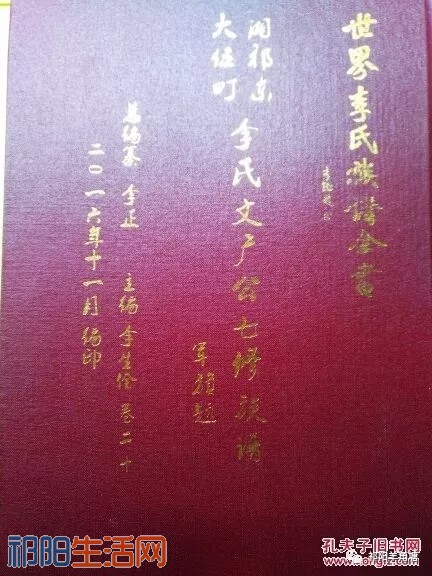 世界李氏族谱全书
湘祁东
大经町
李氏文户公七修族谱
军 题
总编纂 李正 主编 李生 卷二十
二〇一六年十一月编印
祁阳生活网
孔夫子旧书网